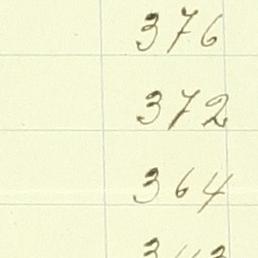 376
372
364